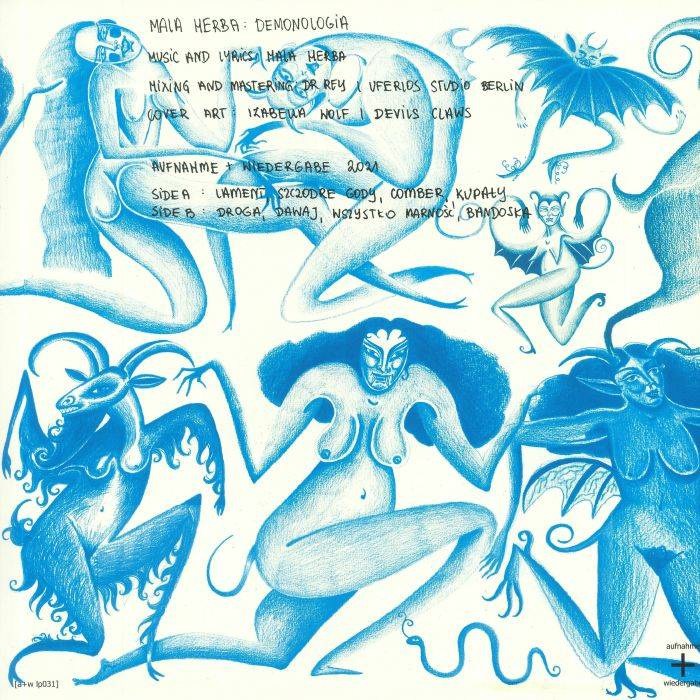 MALA HERBA: DEMONOLOGIA
MUSIC AND LYRICS: MALA HERBA
MIXING AND MASTERING: DR REY | UFERLOS STUDIO BERLIN
COVER ART: IZABELLA WOLF | DEVILS CLAWS
AUFNAHME + WIEDERGABE 2021
SIDE A: LAMENT, SZCZODRE GODY, COMBER, KUPAŁY
SIDE B: DROGA, DAWAJ, WSZYSTKO MARNOŚĆ, BANDOSKA
aufnahme
+
wiedergabe
[a+w lp031]